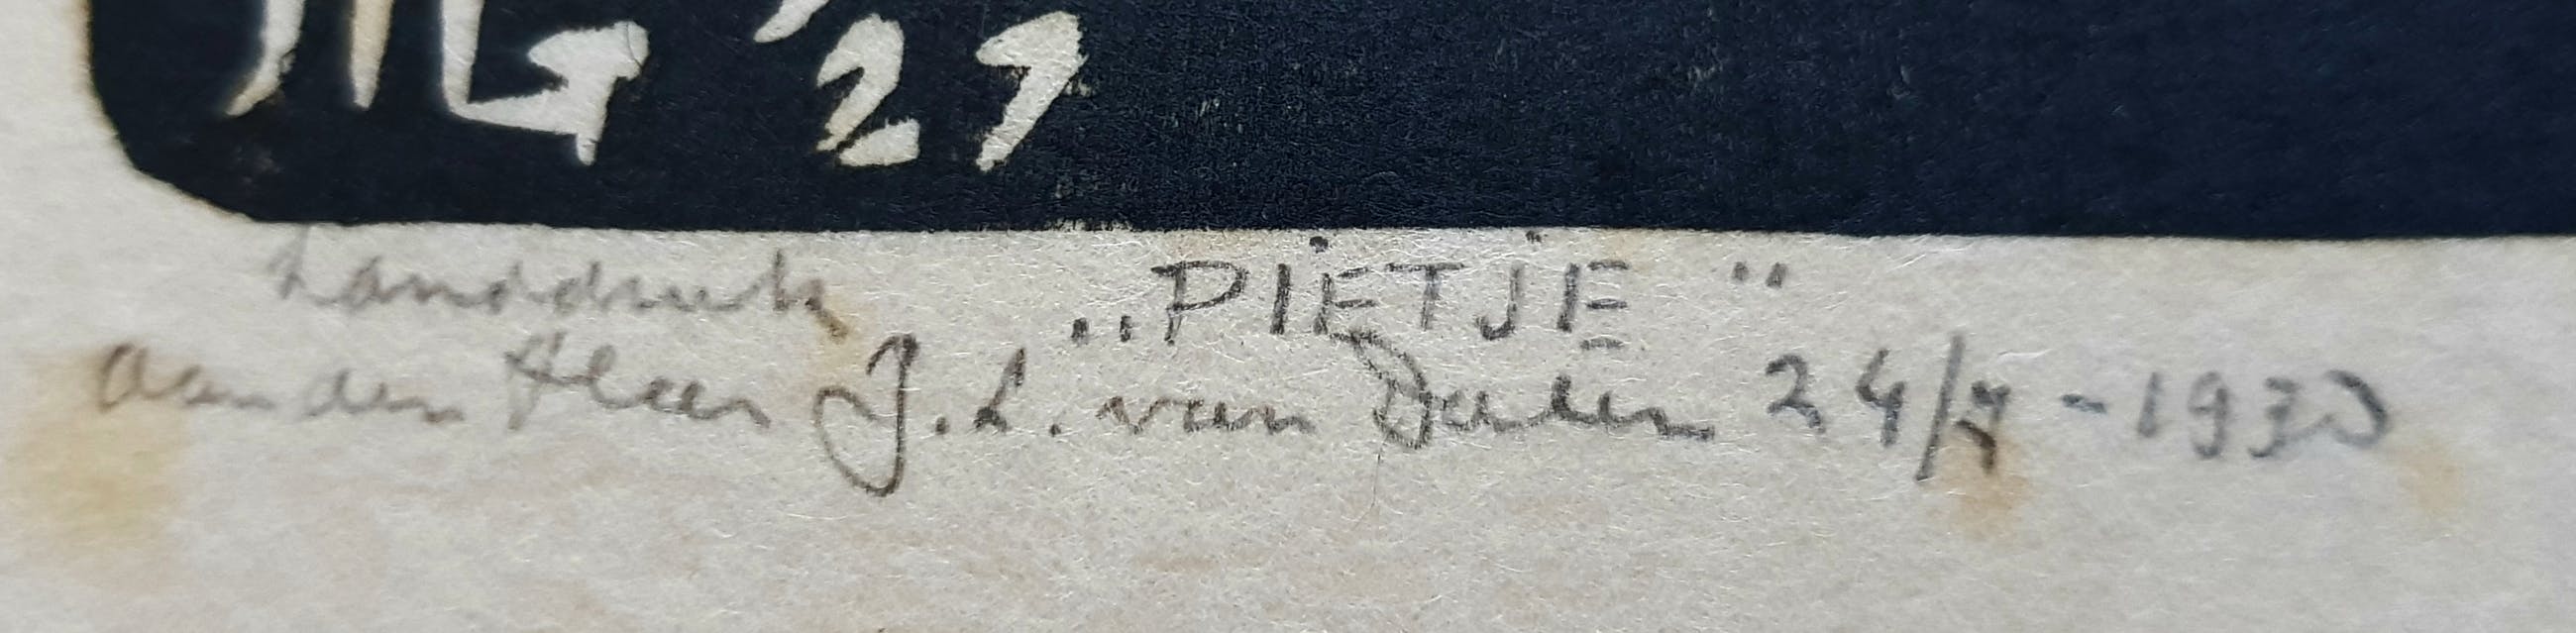 '27
handdruk „PIETJE"
aan den Heer J. L. van Dalen 24/7-1930